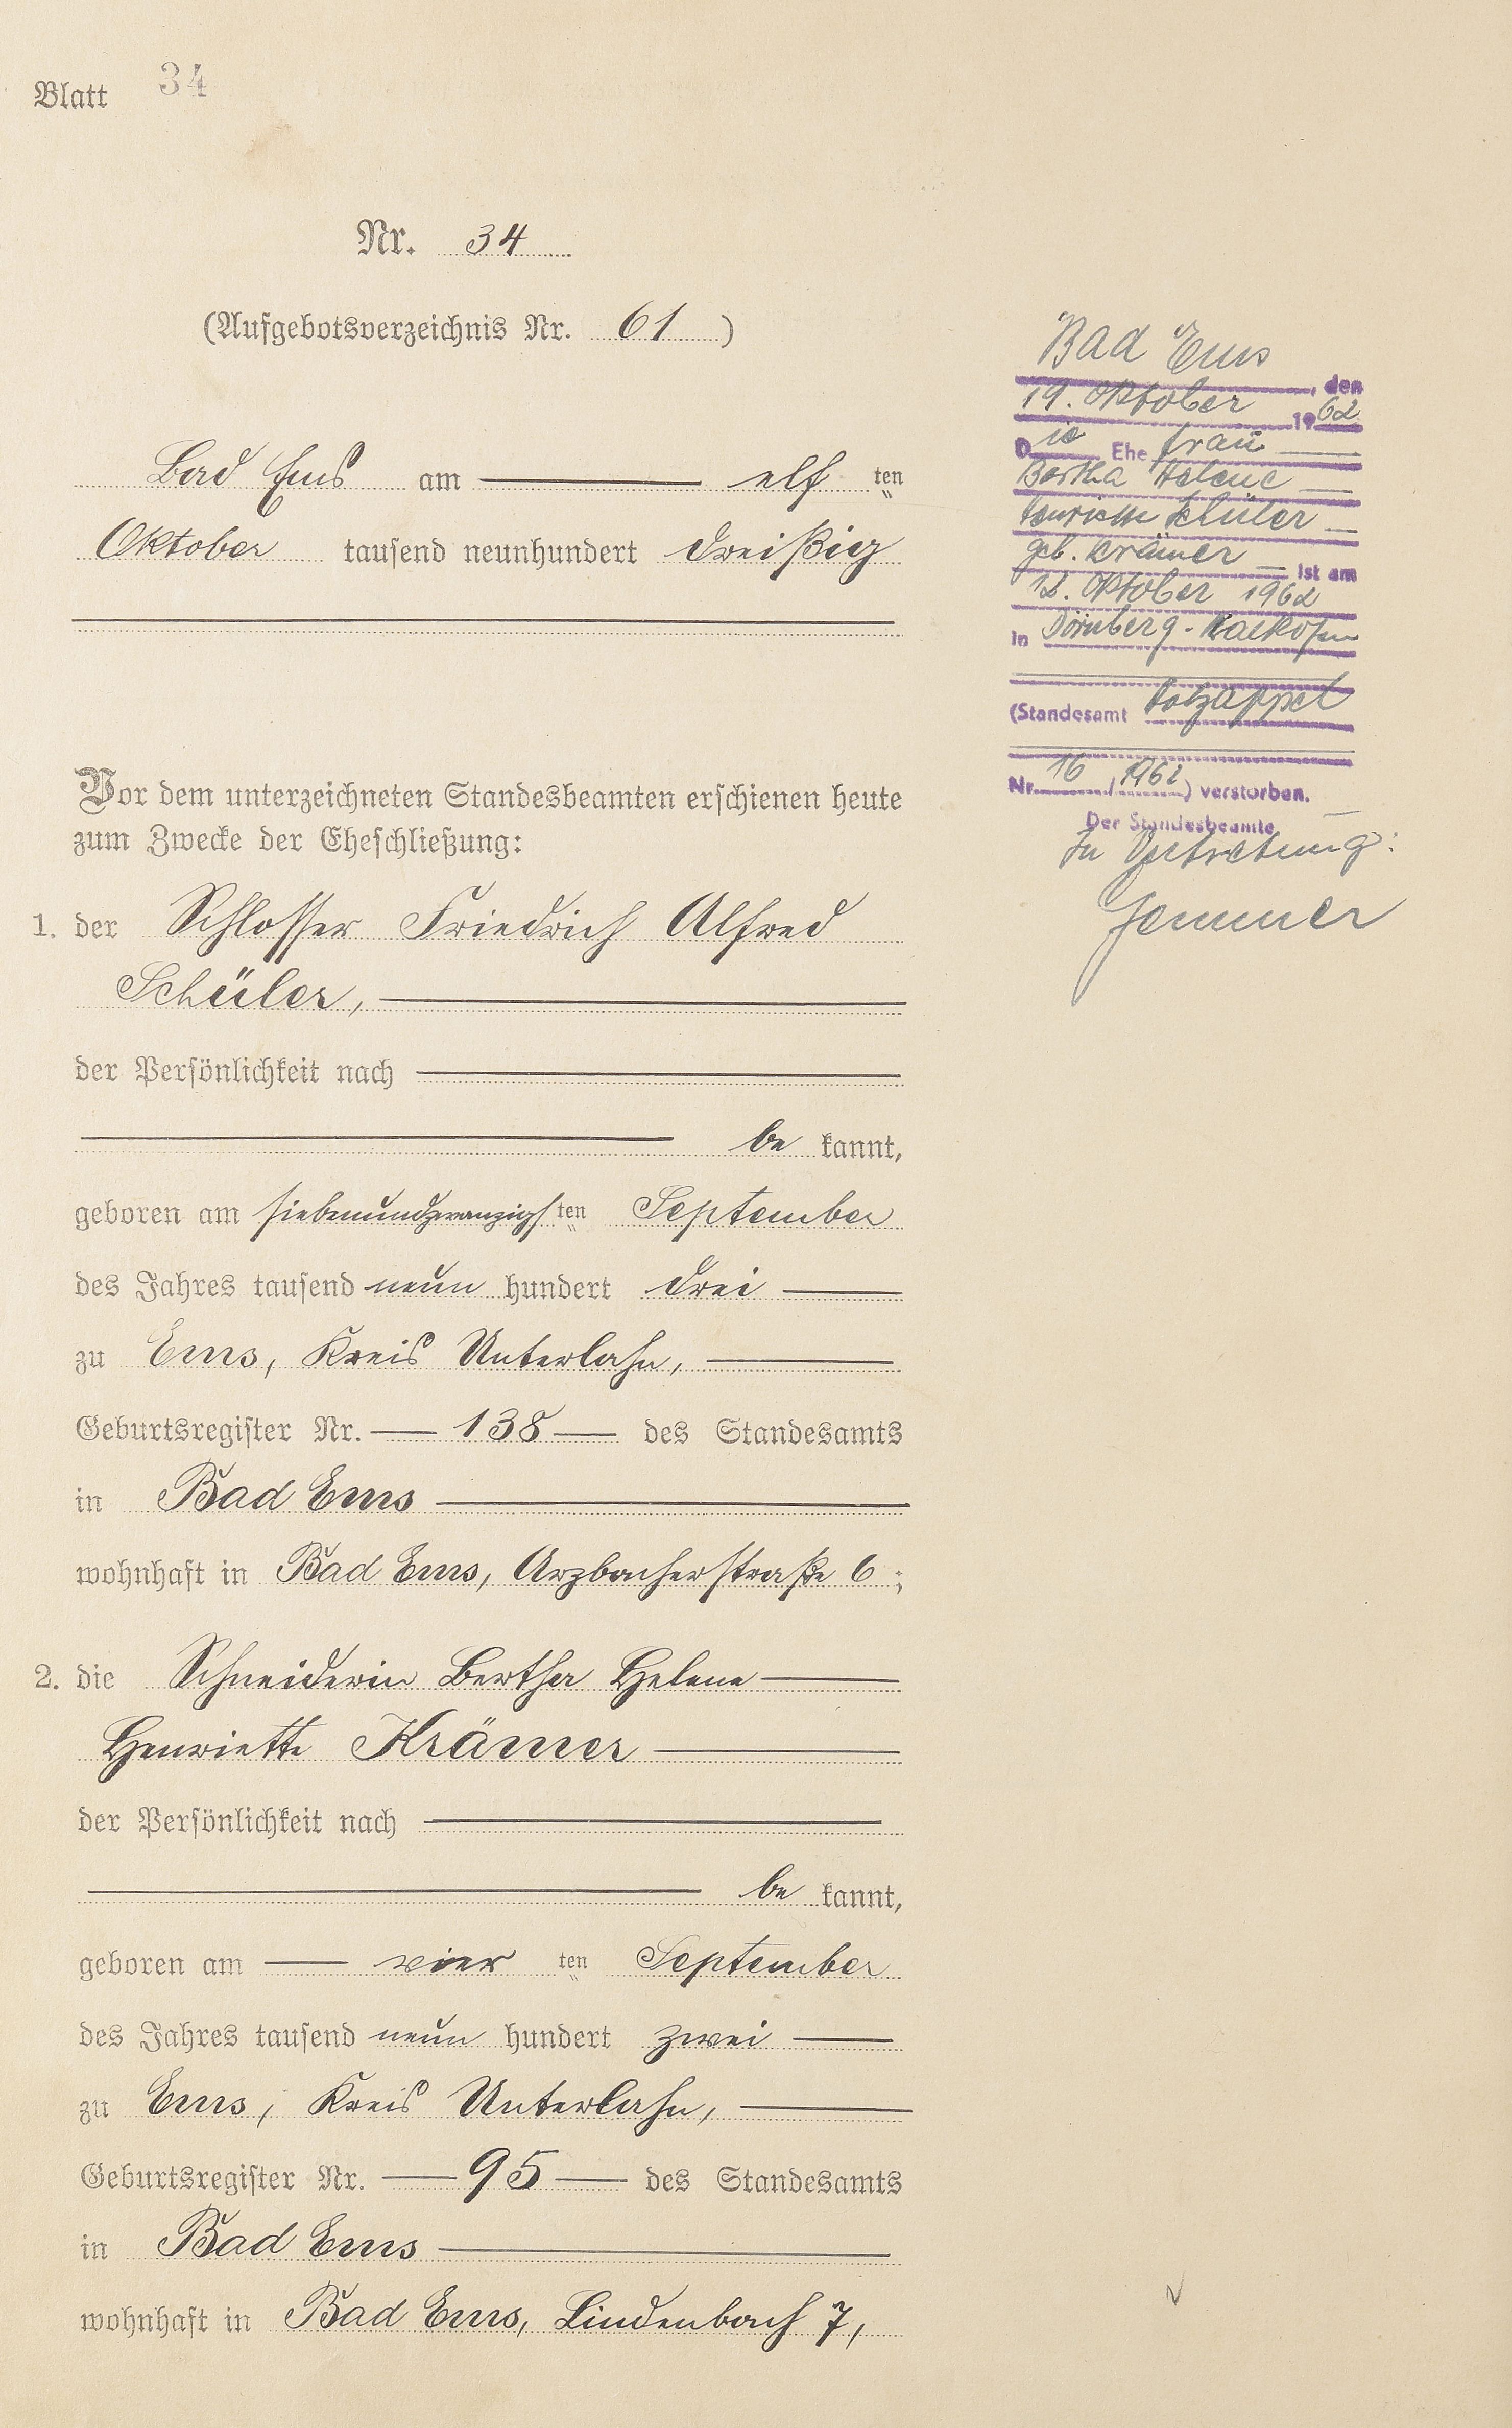 Blatt 34
Nr. 34
(Aufgebotsverzeichnis Nr. 61)
Bad Ems am elf ten
Oktober tausend neunhundert dreißig
Vor dem unterzeichneten Standesbeamten erschienen heute
zum Zwecke der Eheschließung:
1. der Schlosser Friedrich Alfred
Schüler,
der Persönlichkeit nach
be kannt,
geboren am siebenundzwanzigsten September
des Jahres tausend neun hundert drei
zu Ems, Kreis Unterlahn,
Geburtsregister Nr. 138 des Standesamts
in Bad Ems
wohnhaft in Bad Ems, Arzbacherstraße 6;
2. die Schneiderin Bertha Helene
Henriette Krämer
der Persönlichkeit nach
be kannt,
geboren am vier ten September
des Jahres tausend neun hundert zwei
zu Ems, Kreis Unterlahn,
Geburtsregister Nr. 95 des Standesamts
in Bad Ems
wohnhaft in Bad Ems, Lindenbach 7,
Bad Ems, den
19. Oktober 1962
Die Ehefrau
Bertha Helene
Henriette Schüler
geb. Krämer ist am
12. Oktober 1962
in Dörnberg-Kalkofen
(Standesamt Holzappel
Nr. 16/1962) verstorben.
Der Standesbeamte
In Vertretung: